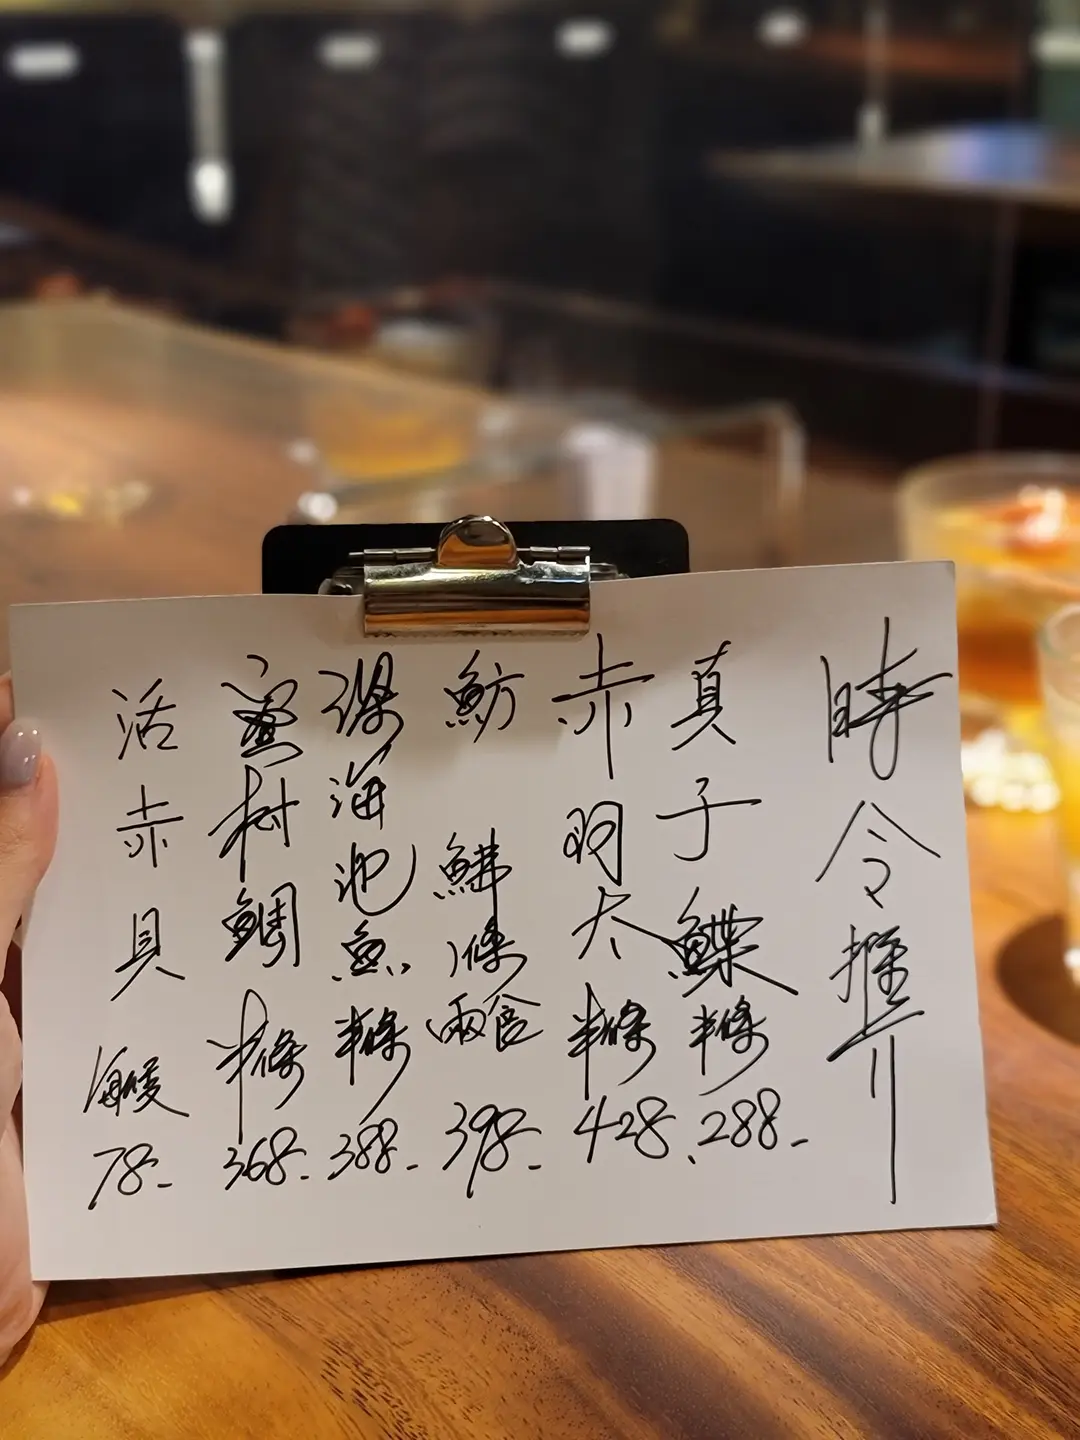 時令推介
真子鰈 半條 288-
赤羽太 半條 428
魴鮄 1條兩食 398-
深海池魚 半條 388-
蜜樹鯛 半條 368-
活赤貝 每隻 78-